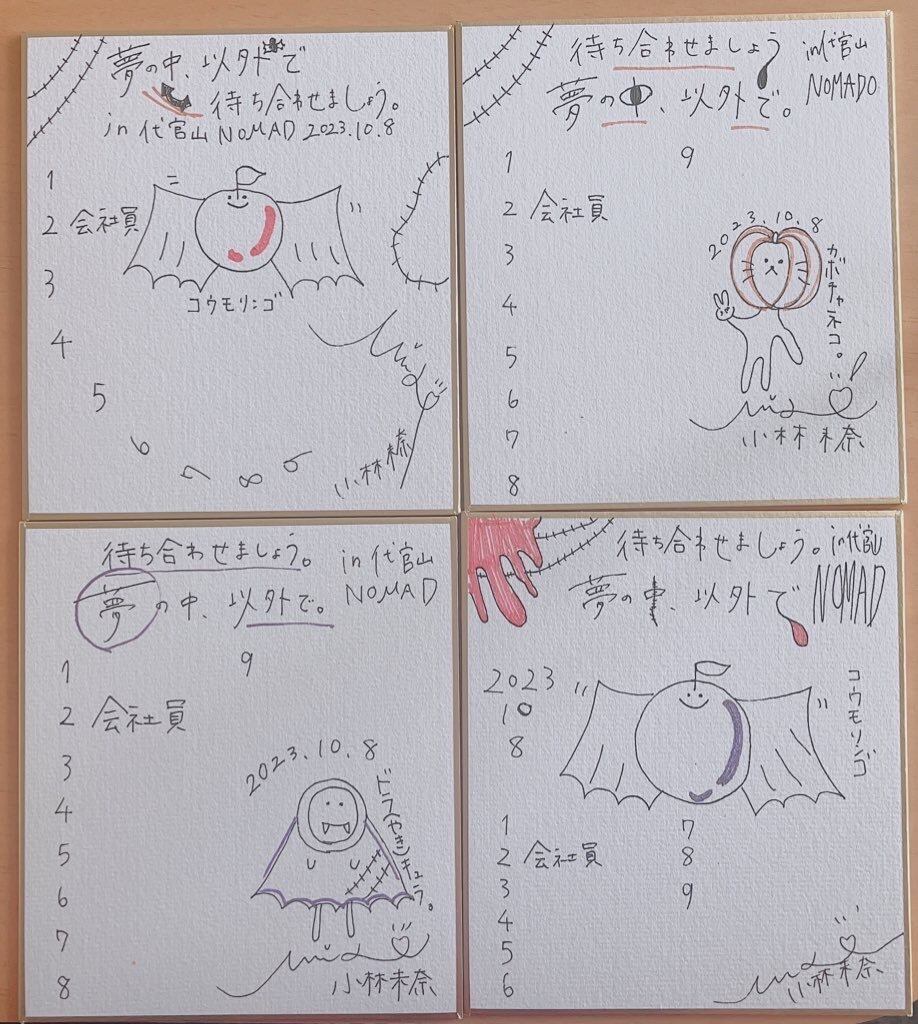 夢の中、以外で
待ち合わせましょう。
in 代官山 NOMAD 2023.10.8
1
2 会社員
3
4
5
6
7
8
9
コウモリンゴ
Mina
小林未奈
待ち合わせましょう
夢の中、以外で。
in代官山
NOMADO
1
2 会社員
3
4
5
6
7
8
9
2023.10.8
カボチャネコ。
Mina
小林未奈
待ち合わせましょう。
夢の中、以外で。
in代官山
NOMAD
1
2 会社員
3
4
5
6
7
8
9
2023.10.8
ドラ(やき)キュラ。
Mina
小林未奈
待ち合わせましょう。
夢の中、以外で
in代官山
NOMAD
2023
10
8
コウモリンゴ
1
2 会社員
3
4
5
6
7
8
9
Mina
小林未奈